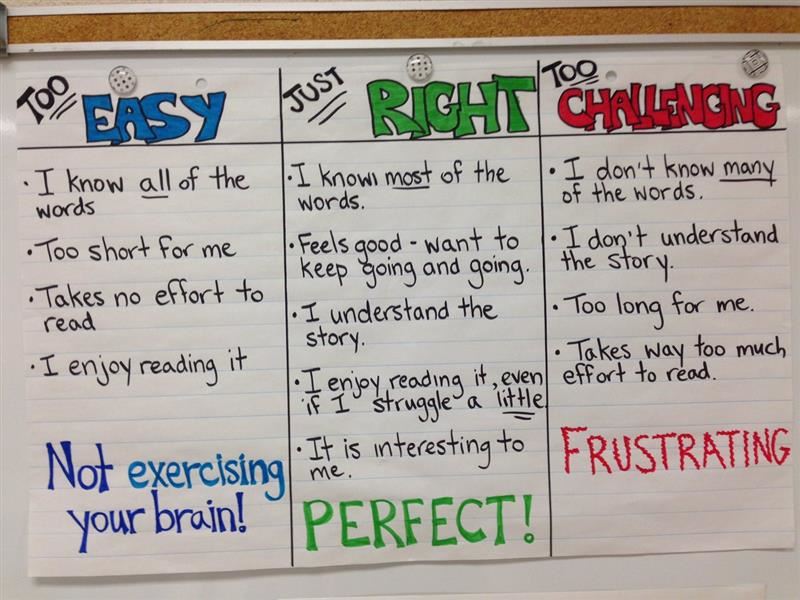 TOO EASY
· I know all of the
words
· Too short for me
· Takes no effort to
read
· I enjoy reading it
Not exercising
your brain!
JUST RIGHT
· I know most of the
words.
· Feels good - want to
keep going and going.
· I understand the
story.
· I enjoy reading it, even
if I struggle a little
· It is interesting to
me.
PERFECT!
TOO CHALLENGING
· I don't know many
of the words.
· I don't understand
the story.
· Too long for me.
· Takes way too much
effort to read.
FRUSTRATING